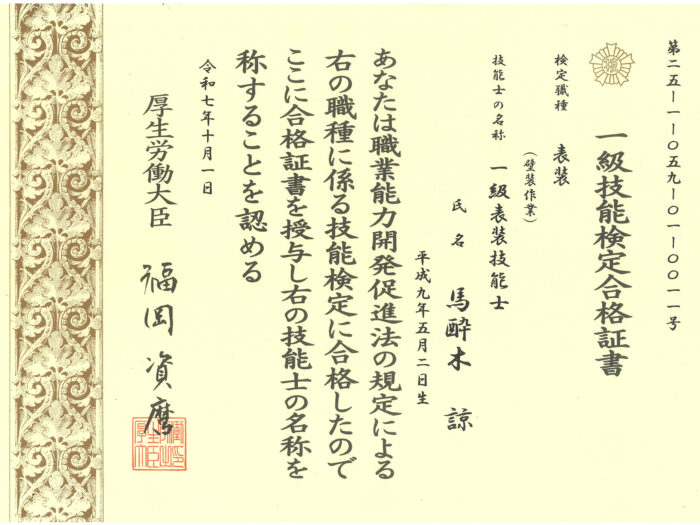 第二五ー一ー〇五九ー〇一ー〇〇一一号
一級技能検定合格証書
検定職種 表装
(壁装作業)
技能士の名称 一級表装技能士
氏名 馬酔木 諒
平成九年五月二日生
あなたは職業能力開発促進法の規定による
右の職種に係る技能検定に合格したので
ここに合格証書を授与し右の技能士の名称を
称することを認める
令和七年十月一日
厚生労働大臣 福岡資麿